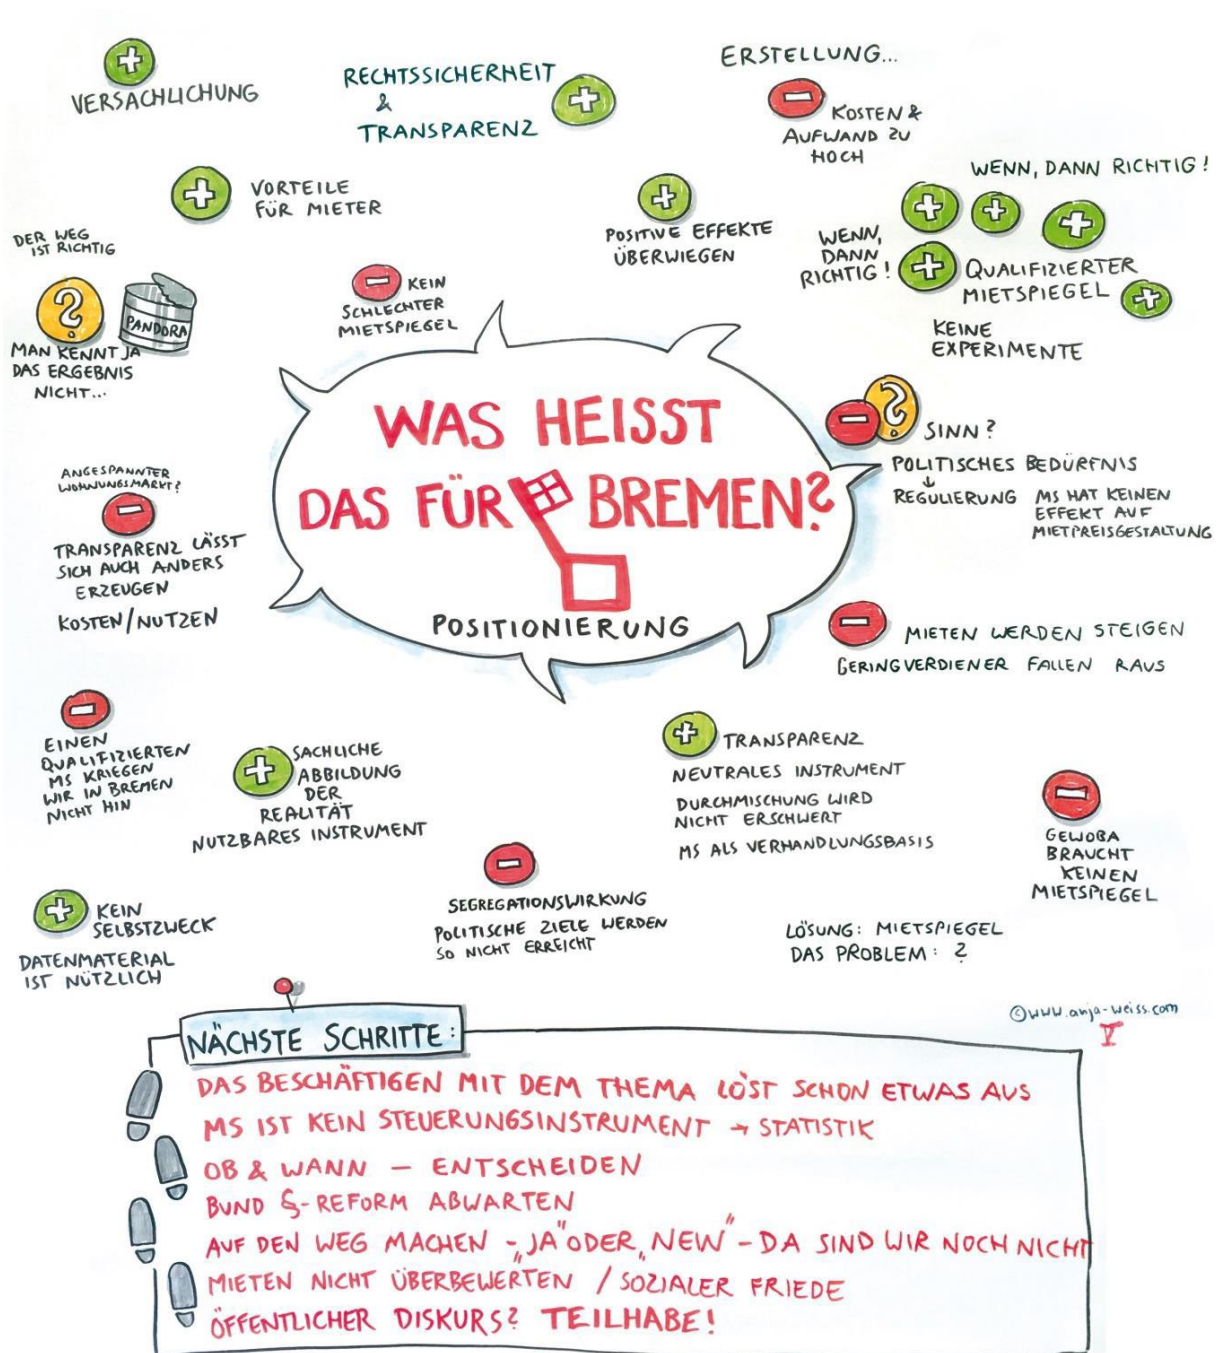 VERSACHLICHUNG
RECHTSSICHERHEIT
&
TRANSPARENZ
ERSTELLUNG...
KOSTEN &
AUFWAND ZU
HOCH
VORTEILE
FÜR MIETER
POSITIVE EFFEKTE
ÜBERWIEGEN
WENN, DANN RICHTIG!
WENN,
DANN
RICHTIG!
QUALIFIZIERTER
MIETSPIEGEL
KEINE
EXPERIMENTE
DER WEG
IST RICHTIG
PANDORA
MAN KENNT JA
DAS ERGEBNIS
NICHT...
KEIN
SCHLECHTER
MIETSPIEGEL
WAS HEISST
DAS FÜR BREMEN?
POSITIONIERUNG
SINN?
POLITISCHES BEDÜRFNIS
REGULIERUNG
MS HAT KEINEN
EFFEKT AUF
MIETPREISGESTALTUNG
ANGESPANNTER
WOHNUNGSMARKT?
TRANSPARENZ LÄSST
SICH AUCH ANDERS
ERZEUGEN
KOSTEN/NUTZEN
MIETEN WERDEN STEIGEN
GERINGVERDIENER FALLEN RAUS
EINEN
QUALIFIZIERTEN
MS KRIEGEN
WIR IN BREMEN
NICHT HIN
SACHLICHE
ABBILDUNG
DER
REALITÄT
NUTZBARES INSTRUMENT
TRANSPARENZ
NEUTRALES INSTRUMENT
DURCHMISCHUNG WIRD
NICHT ERSCHWERT
MS ALS VERHANDLUNGSBASIS
GEWOBA
BRAUCHT
KEINEN
MIETSPIEGEL
KEIN
SELBSTZWECK
DATENMATERIAL
IST NÜTZLICH
SEGREGATIONSWIRKUNG
POLITISCHE ZIELE WERDEN
SO NICHT ERREICHT
LÖSUNG: MIETSPIEGEL
DAS PROBLEM: ?
©www.anja-weiss.com
V
NÄCHSTE SCHRITTE:
DAS BESCHÄFTIGEN MIT DEM THEMA LÖST SCHON ETWAS AUS
MS IST KEIN STEUERUNGSINSTRUMENT → STATISTIK
OB & WANN – ENTSCHEIDEN
BUND §-REFORM ABWARTEN
AUF DEN WEG MACHEN - „JA" ODER „NEW" - DA SIND WIR NOCH NICHT
MIETEN NICHT ÜBERBEWERTEN / SOZIALER FRIEDE
ÖFFENTLICHER DISKURS? TEILHABE!